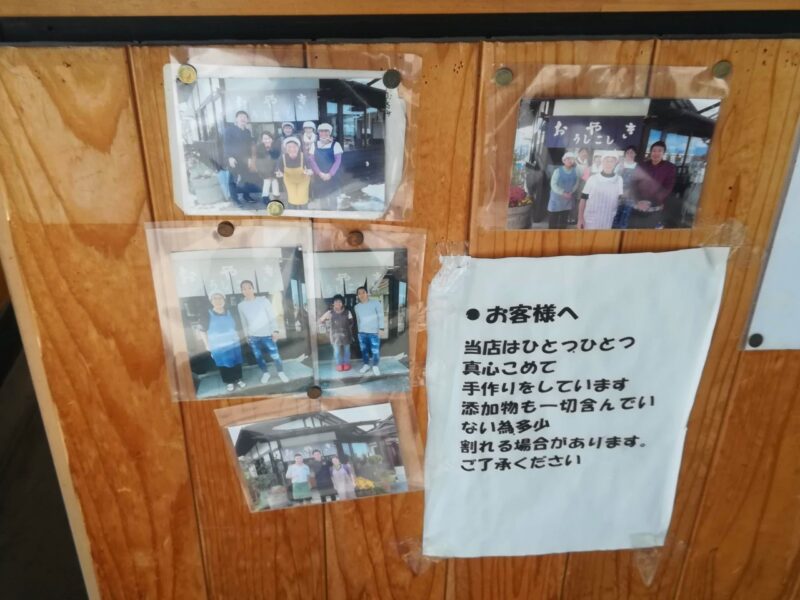 おやき
おやき
うしこし
おやき
おやき
●お客様へ
当店はひとつひとつ
真心こめて
手作りをしています
添加物も一切含んでい
ない為多少
割れる場合があります。
ご了承ください